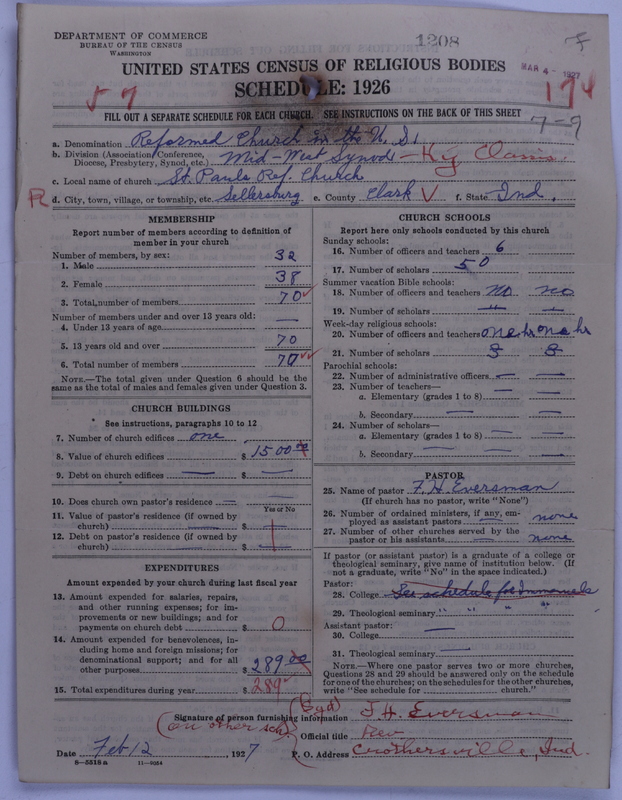 DEPARTMENT OF COMMERCE
BUREAU OF THE CENSUS
WASHINGTON
1208
UNITED STATES CENSUS OF RELIGIOUS BODIES
MAR 4 - 1927
SCHEDULE: 1926
57
174
FILL OUT A SEPARATE SCHEDULE FOR EACH CHURCH. SEE INSTRUCTIONS ON THE BACK OF THIS SHEET
7-9
a. Denomination Reformed Church in the U. S.
b. Division (Association, Conference, Diocese, Presbytery, Synod, etc.) Mid-West Synod - Ky Classis
c. Local name of church St. Pauls Ref. Church
R d. City, town, village, or township, etc. Sellersburg e. County Clark V f. State Ind.
MEMBERSHIP
Report number of members according to definition of
member in your church
Number of members, by sex:
1. Male 32
2. Female 38
3. Total number of members 70 ✓
Number of members under and over 13 years old:
4. Under 13 years of age —
5. 13 years old and over 70
6. Total number of members 70 ✓✓
NOTE.—The total given under Question 6 should be
same as the total of males and females given under Question 3.
CHURCH BUILDINGS
See instructions, paragraphs 10 to 12
7. Number of church edifices one
8. Value of church edifices $ 1500 00
9. Debt on church edifices — $ —
10. Does church own pastor's residence —
Yes or No
11. Value of pastor's residence (if owned by
church) — $
12. Debt on pastor's residence (if owned by
church) — $
EXPENDITURES
Amount expended by your church during last fiscal year
13. Amount expended for salaries, repairs,
and other running expenses; for im-
provements or new buildings; and for
payments on church debt $ 0
14. Amount expended for benevolences, in-
cluding home and foreign missions; for
denominational support; and for all
other purposes $ 289 00
15. Total expenditures during year $ 289
CHURCH SCHOOLS
Report here only schools conducted by this church
Sunday schools:
16. Number of officers and teachers 6
17. Number of scholars 50
Summer vacation Bible schools:
18. Number of officers and teachers no no
19. Number of scholars " "
Week-day religious schools:
20. Number of officers and teachers one hr one hr
21. Number of scholars 8 8
Parochial schools:
22. Number of administrative officers — —
23. Number of teachers—
a. Elementary (grades 1 to 8) — —
b. Secondary — —
24. Number of scholars—
a. Elementary (grades 1 to 8) — —
b. Secondary — —
PASTOR
25. Name of pastor F. H. Eversman
(If church has no pastor, write "None")
26. Number of ordained ministers, if any, em-
ployed as assistant pastors — none
27. Number of other churches served by the
pastor or his assistants — none
If pastor (or assistant pastor) is a graduate of a college or
theological seminary, give name of institution below. (If
not a graduate, write "No" in the space indicated.)
Pastor:
28. College See schedule for Immanuels
29. Theological seminary " " " "
Assistant pastor:
30. College —
31. Theological seminary —
NOTE.—Where one pastor serves two or more churches,
Questions 28 and 29 should be answered only on the schedule
for one of the churches; on the schedules for the other churches,
write "See schedule for ______ church."
(Sgd)
Signature of person furnishing information F. H. Eversman
(on other sch.) Official title Rev
Date Feb 12 1927 P. O. Address Crothersville, Ind.
8—5518a 11—9054